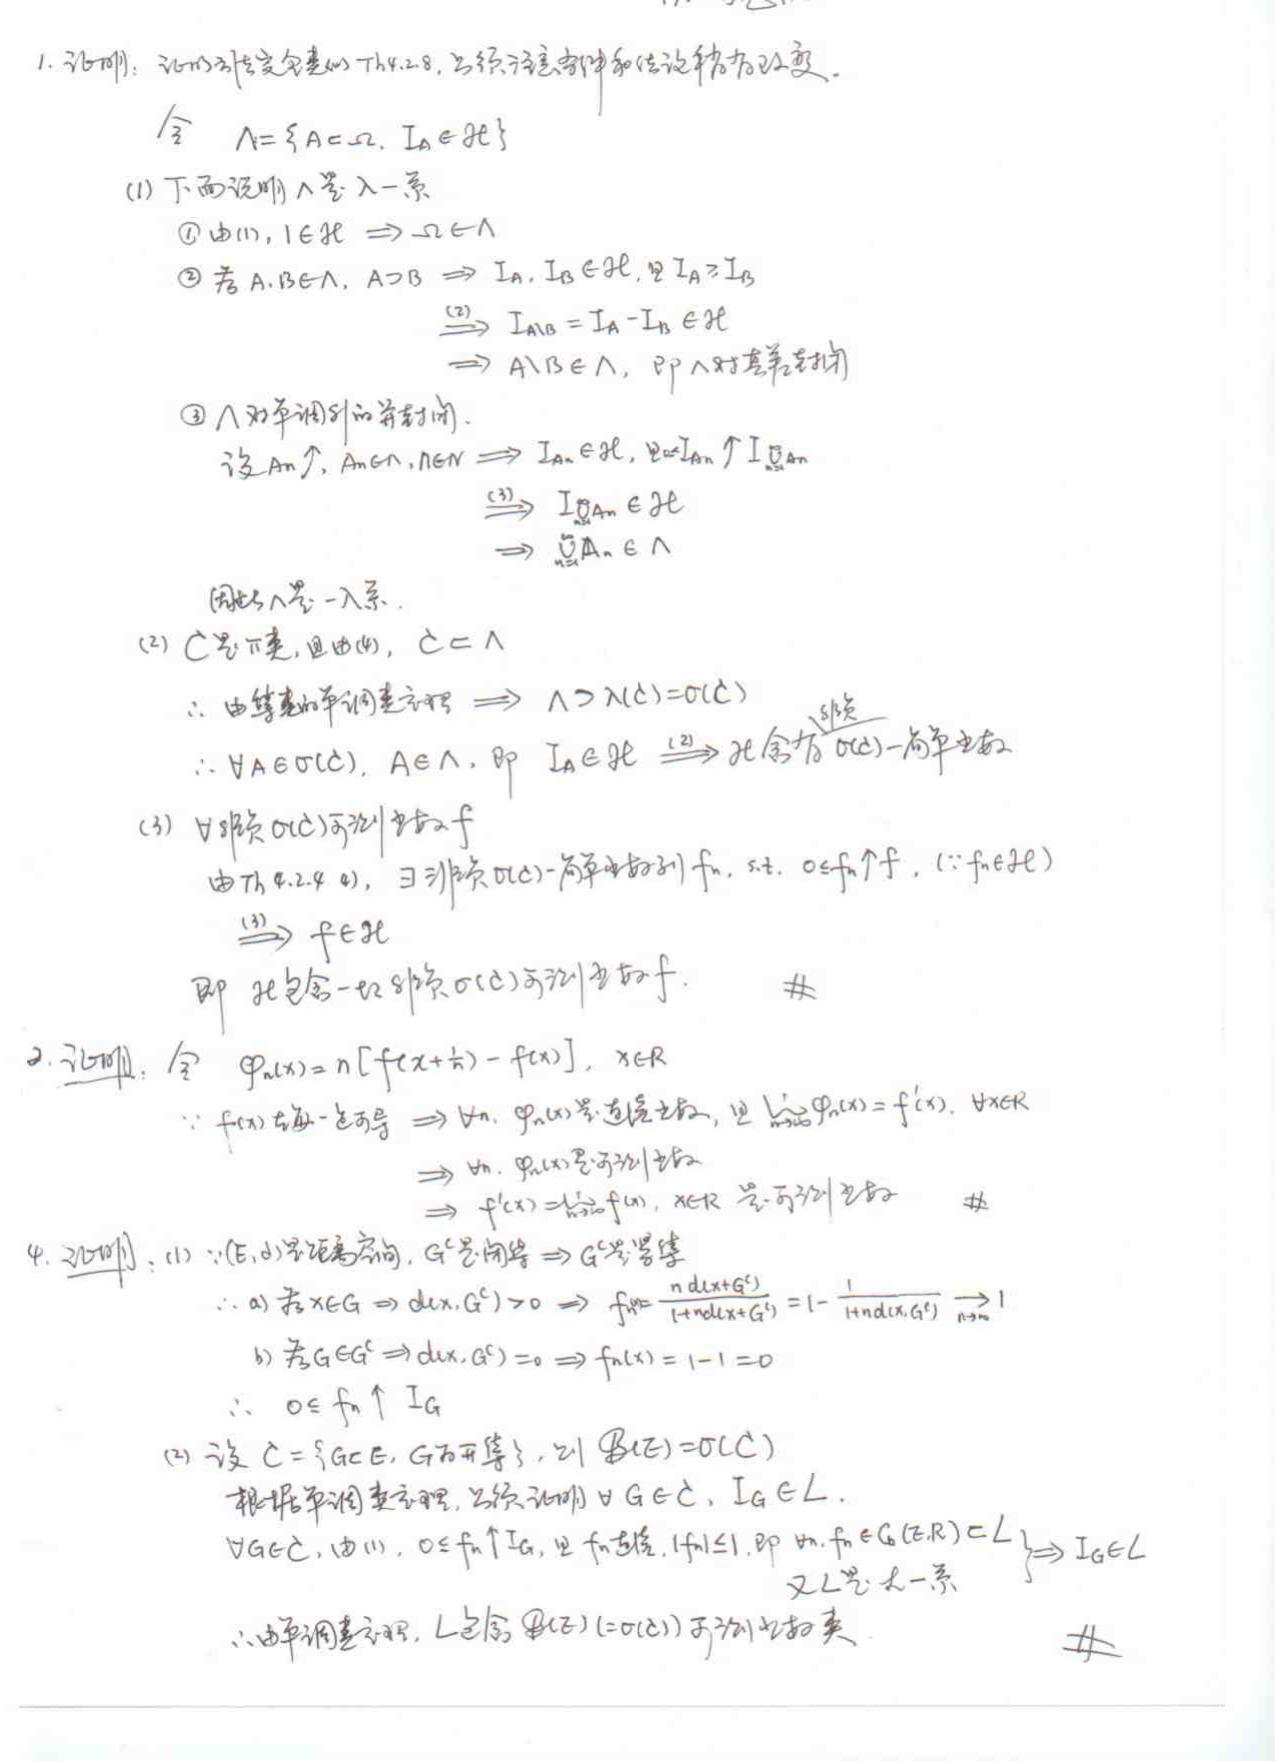 1. 证明: 证明方法完全类似 Th4.2.8, 只须注意条件和结论稍有改变.
令 Λ={A⊂Ω, I_A∈ℋ}
(1) 下面说明Λ是λ-系
① 由(1), 1∈ℋ ⟹ Ω∈Λ
② 若A.B∈Λ, A⊃B ⟹ I_A, I_B∈ℋ, 且 I_A≥I_B
(2)⟹ I_{A\B} = I_A - I_B ∈ℋ
⟹ A\B∈Λ, 即Λ对真差封闭
③ Λ对单调列的并封闭.
设An↑, An∈Λ, n∈N ⟹ I_{An}∈ℋ, 且0≤I_{An}↑I_{⋃_{n=1}^∞ An}
(3)⟹ I_{⋃_{n=1}^∞ An} ∈ ℋ
⟹ ⋃_{n=1}^∞ An ∈ Λ
因此Λ是一λ系.
(2) C是π类, 且由(4), C⊂Λ
∴ 由集类的单调类定理 ⟹ Λ⊃λ(C)=σ(C)
∴ ∀A∈σ(C), A∈Λ, 即 I_A∈ℋ (2)⟹ ℋ含有非负σ(C)-简单函数
(3) ∀非负σ(C)可测函数f
由Th 4.2.4 4), ∃非负σ(C)-简单函数列fn, s.t. 0≤fn↑f, (∵fn∈ℋ)
(3)⟹ f∈ℋ
即 ℋ包含一切非负σ(C)可测函数f. #
2. 证明: 令 φn(x)=n[f(x+1/n)-f(x)], x∈R
∵ f(x)在每一点可导 ⟹ ∀n, φn(x)是连续函数, 且 lim_{n→∞}φn(x)=f'(x), ∀x∈R
⟹ ∀n, φn(x)是可测函数
⟹ f'(x)=lim_{n→∞}f(x), x∈R 是可测函数 #
4. 证明: (1) ∵(E,d)是距离空间, G^c是闭集 ⟹ G^c是紧集
∴ a) 若x∈G ⟹ d(x,G^c)>0 ⟹ fn(x)= nd(x+G^c)/(1+nd(x+G^c)) = 1- 1/(1+nd(x,G^c)) →_{n→∞} 1
b) 若G∈G^c ⟹ d(x,G^c)=0 ⟹ fn(x)=1-1=0
∴ 0≤fn↑I_G
(2) 设 C={G⊂E, G为开集}, 则 ℬ(E)=σ(C)
根据单调类定理, 只须证明∀G∈C, I_G∈L.
∀G∈C, 由(1), 0≤fn↑I_G, 且fn连续, |fn|≤1, 即 ∀n, fn∈C_b(E,R)⊂L } ⟹ I_G∈L
又L是ℒ-系
∴由单调类定理, L包含ℬ(E)(=σ(C))可测函数类. #